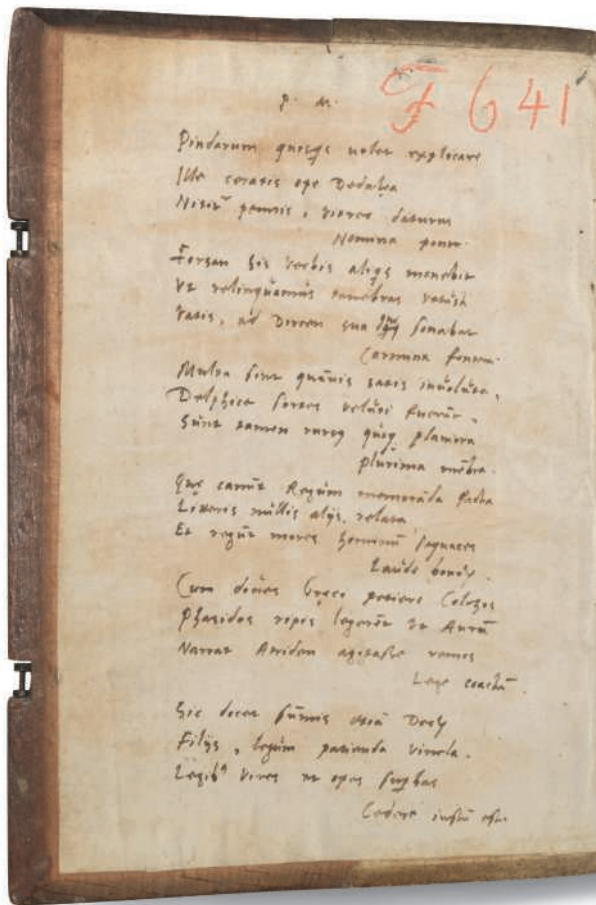 F 641
P. M.
Pindarum quisq̃s volet explicare
Ille ceratis ope Dedalea
Nititur pennis, vitreo daturus
Nomina ponto.
Forsan his verbis aliq̃s monebit
Vt relinquamus tenebras
Vatis, ad Dircen sua qui sonabat
Carmina fontem.
Multa sint quãuis satis inuoluta,
Delphicae sortes veluti fuerũt,
Sunt tamen
plurima
Que canũt Regum memorãda facta
Litteris nullis alijs relata
Et regũt mores hominũ sequaces
Laude
Cum duces Greci petiere Colchos
Phasidos ripis legerẽt vt Aurũ
Narrat Aeriden agitasse remos
Lege coactũ.
Hic docet summis etiã
Filijs, legum patienda vincla.
Legib⁹ vires et opes supbas
Cedere iustũ esse